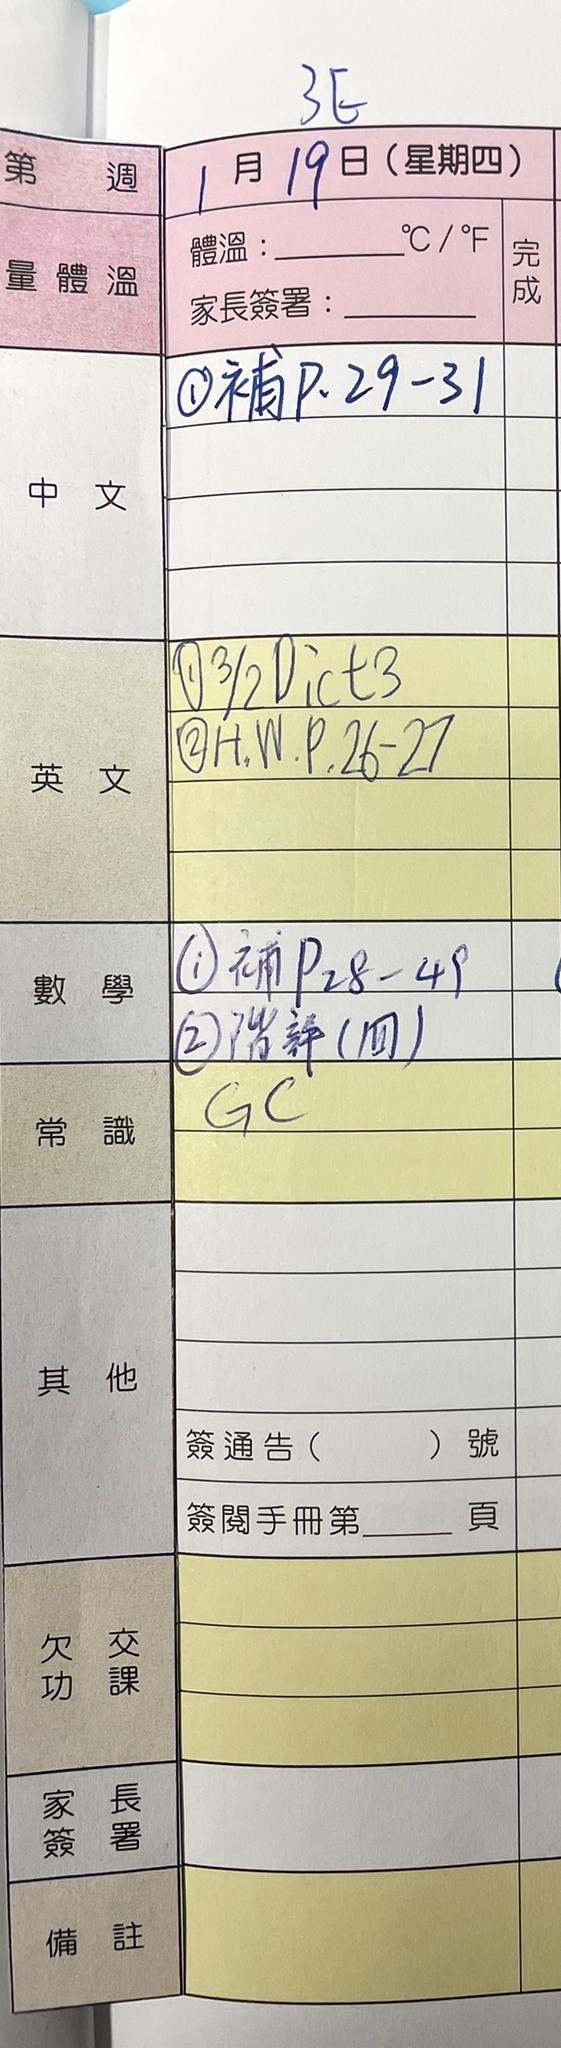 3E
第 週 1 月 19 日（星期四）
量體溫 體溫：______℃/℉ 完成
家長簽署：______
中文 ①補P.29-31
英文 ①3/2 Dict3
②H.W.P.26-27
數學 ①補P28-49
②階評(回)
常識 GC
其他
簽通告（ ）號
簽閱手冊第____頁
欠交功課
家長簽署
備註